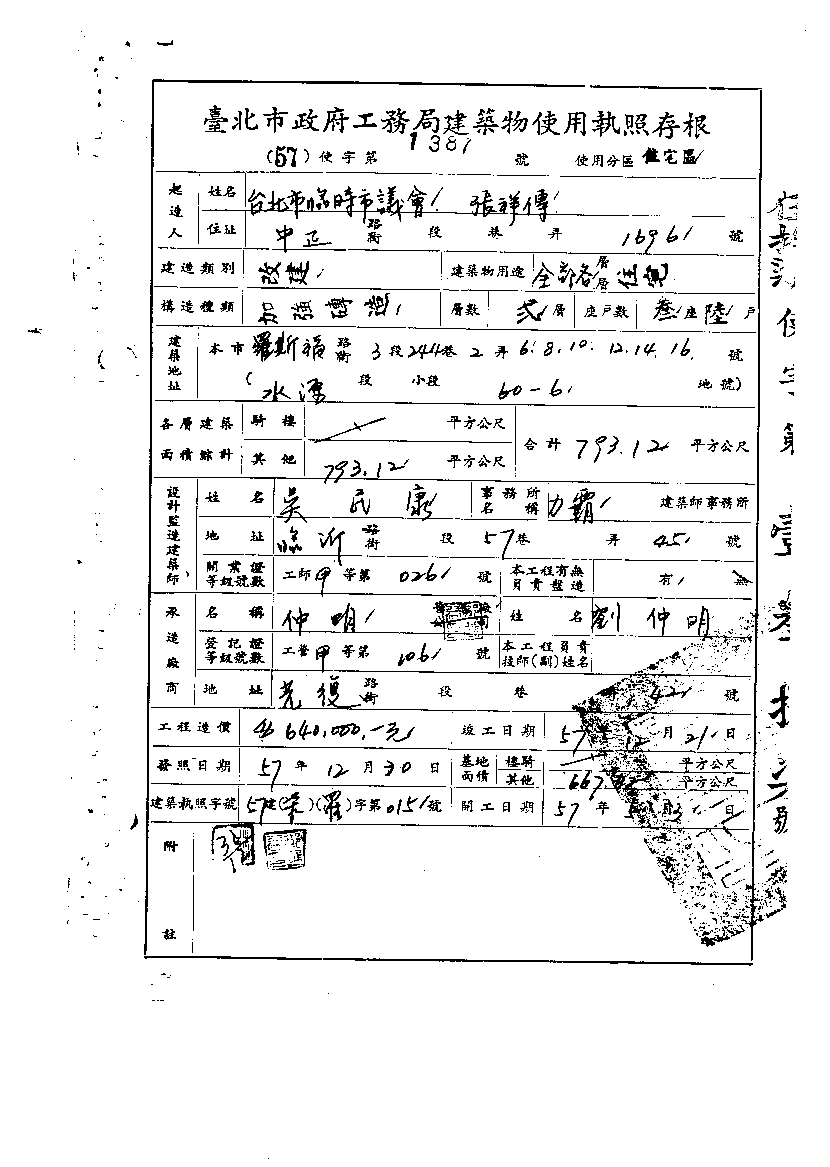 臺北市政府工務局建築物使用執照存根
(57)使字第1381號 使用分區 住宅區
起造人 姓名 台北市臨時市議會 張祥傳
住址 中正 路街 段 巷 弄 1696 號
建造類別 改建 建築物用途 全部各層層住宅
構造種類 加強磚造 層數 貳層 座戶數 叁座陸戶
建築地址 本市羅斯福路街3段244巷2弄6.8.10.12.14.16.號
(水源 段 小段 60-6 地號)
各層建築面積綜計 騎樓 平方公尺 合計 793.12 平方公尺
其他 793.12 平方公尺
設計監造建築師 姓名 吳民康 事務所名稱 力霸 建築師事務所
地址 臨沂路街 段 57巷 弄 45 號
開業證等級號數 工師甲等第 026 號 本工程有無負責監造 有 無
承造廠商 名稱 仲明 姓名 劉仲明
登記證等級號數 工營甲等第 106 號 本工程負責技師(副)姓名
地址 光復路街 段 巷 42 號
工程造價 640,000.-元 竣工日期 57年12月21日
發照日期 57年12月30日 基地面積 樓騎 平方公尺
其他 平方公尺
建築執照字號 57建( )(羅)字第015號 開工日期 57年 月 日
附註
使字第